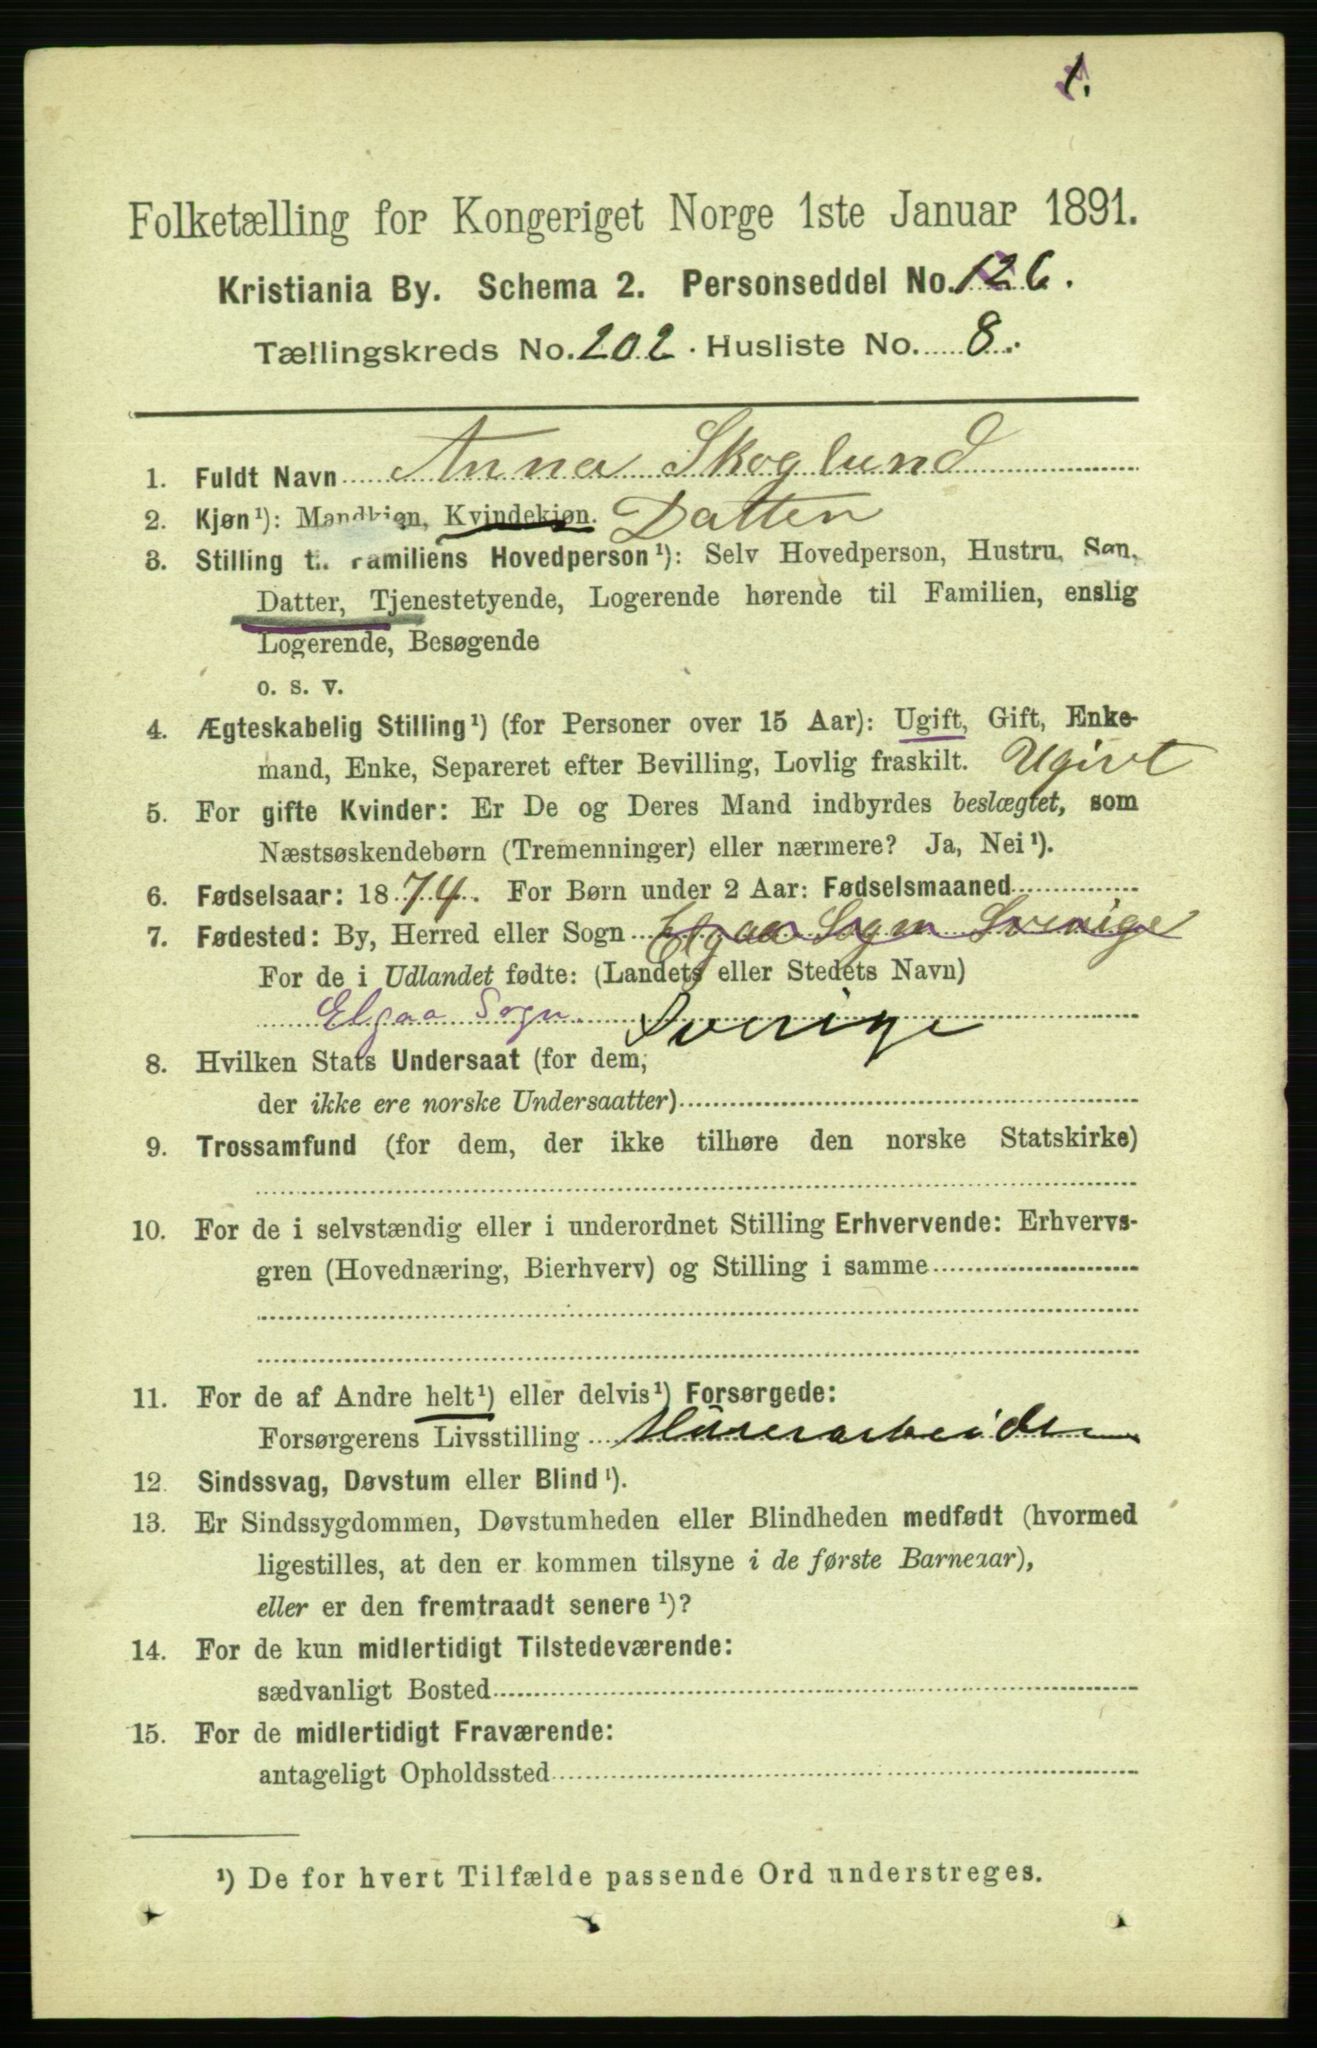 1.
Folketælling for Kongeriget Norge 1ste Januar 1891.
Kristiania By. Schema 2. Personseddel No. 126.
Tællingskreds No. 202. Husliste No. 8.
1. Fuldt Navn Anna Skoglund
2. Kjøn¹): Mandkjøn, Kvindekjøn. Datter
3. Stilling t. Familiens Hovedperson¹): Selv Hovedperson, Hustru, Søn,
Datter, Tjenestetyende, Logerende hørende til Familien, enslig
Logerende, Besøgende
o. s. v.
4. Ægteskabelig Stilling¹) (for Personer over 15 Aar): Ugift, Gift, Enke-
mand, Enke, Separeret efter Bevilling, Lovlig fraskilt. Ugivt
5. For gifte Kvinder: Er De og Deres Mand indbyrdes beslægtet, som
Næstsøskendebørn (Tremenninger) eller nærmere? Ja, Nei¹).
6. Fødselsaar: 1874. For Børn under 2 Aar: Fødselsmaaned
7. Fødested: By, Herred eller Sogn Elgaa Sogn Sverige
For de i Udlandet fødte: (Landets eller Stedets Navn)
Elgaa Sogn. Sverige
8. Hvilken Stats Undersaat (for dem,
der ikke ere norske Undersaatter)
9. Trossamfund (for dem, der ikke tilhøre den norske Statskirke)
10. For de i selvstændig eller i underordnet Stilling Erhvervende: Erhvervs-
gren (Hovednæring, Bierhverv) og Stilling i samme
11. For de af Andre helt¹) eller delvis¹) Forsørgede:
Forsørgerens Livsstilling Murerarbeider
12. Sindssvag, Døvstum eller Blind¹).
13. Er Sindssygdommen, Døvstumheden eller Blindheden medfødt (hvormed
ligestilles, at den er kommen tilsyne i de første Barneaar),
eller er den fremtraadt senere¹)?
14. For de kun midlertidigt Tilstedeværende:
sædvanligt Bosted
15. For de midlertidigt Fraværende:
antageligt Opholdssted
¹) De for hvert Tilfælde passende Ord understreges.